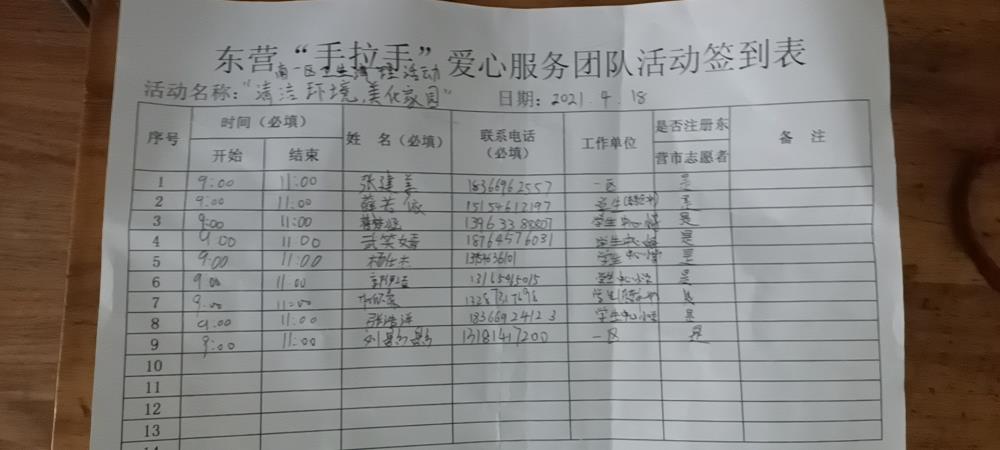 东营“手拉手”爱心服务团队活动签到表
南一区卫生清理活动
活动名称：“清洁环境,美化家园” 日期：2021.4.18
序号 时间（必填） 姓 名（必填） 联系电话（必填） 工作单位 是否注册东营市志愿者 备 注
开始 结束
1 9:00 11:00 张建美 18366962557 一区 是
2 9:00 11:00 薛若依 15154612197 学生 是
3 9:00 11:00 学生中心小学 是
4 9:00 11:00 武笑嫣 18764576031 学生 是
5 9:00 11:00 学生中心小学 是
6 9:00 11:00 13165465015 学生中心小学 是
7 9:00 11:00 学生 是
8 9:00 11:00 张浩洋 18366924123 学生中心小学 是
9 9:00 11:00 刘易易 13181417200 一区 是
10
11
12
13